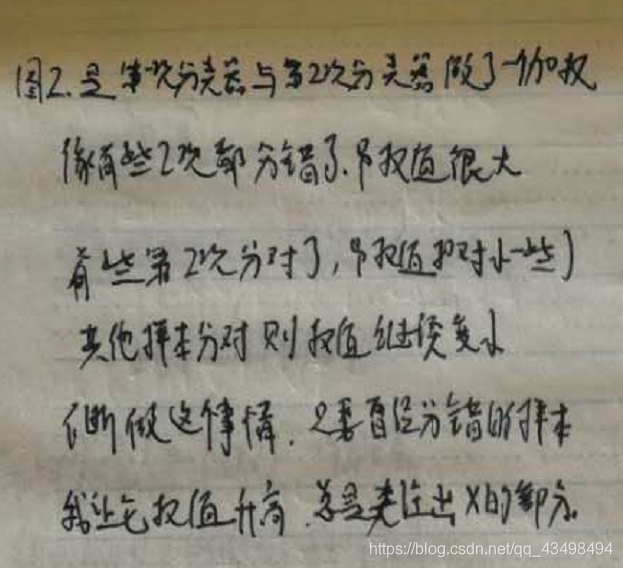 图2.是第一次分类器与第2次分类器做了一个加权
像有些2次都分错了.那权值很大
有些第2次分对了,那权值相对小一些
其他样本分对则权值继续变小
不断做这个事情.只要曾经分错的样本
我让它权值升高.总是关注出X的部分.
https://blog.csdn.net/qq_43498494